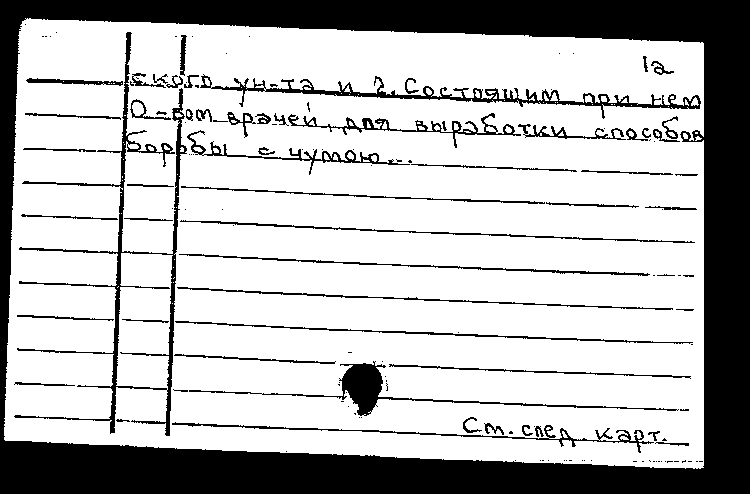 1а
ского ун-та и 2. Состоящим при нем
О-вом врачей, для выработки способов
борьбы с чумою...
См. след. карт.